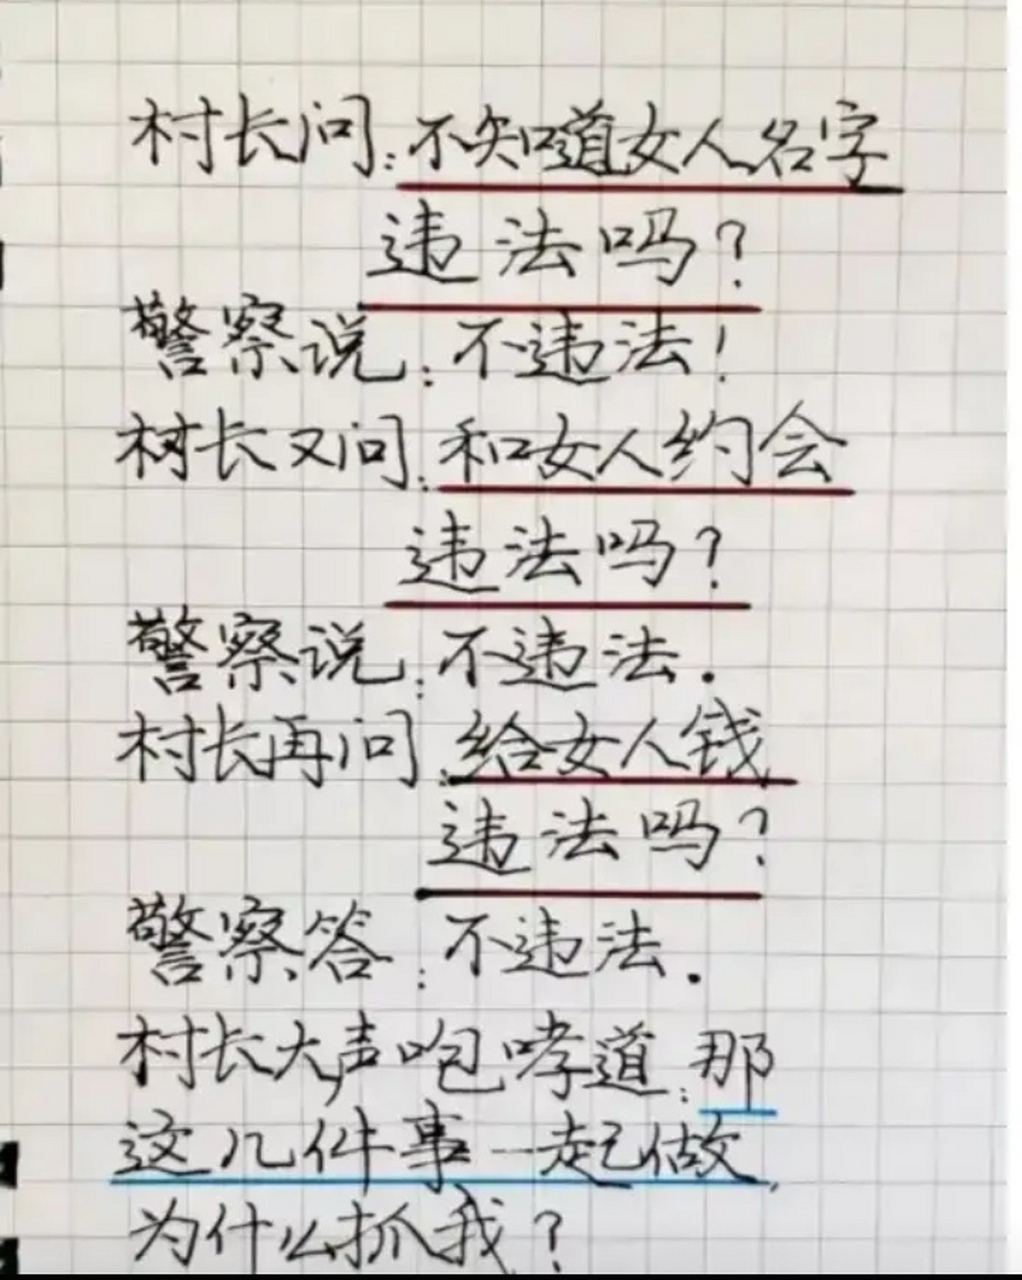 村长问:不知道女人名字
违法吗?
警察说:不违法!
村长又问:和女人约会
违法吗?
警察说:不违法.
村长再问:给女人钱
违法吗?
警察答:不违法.
村长大声咆哮道:那
这几件事一起做,
为什么抓我?